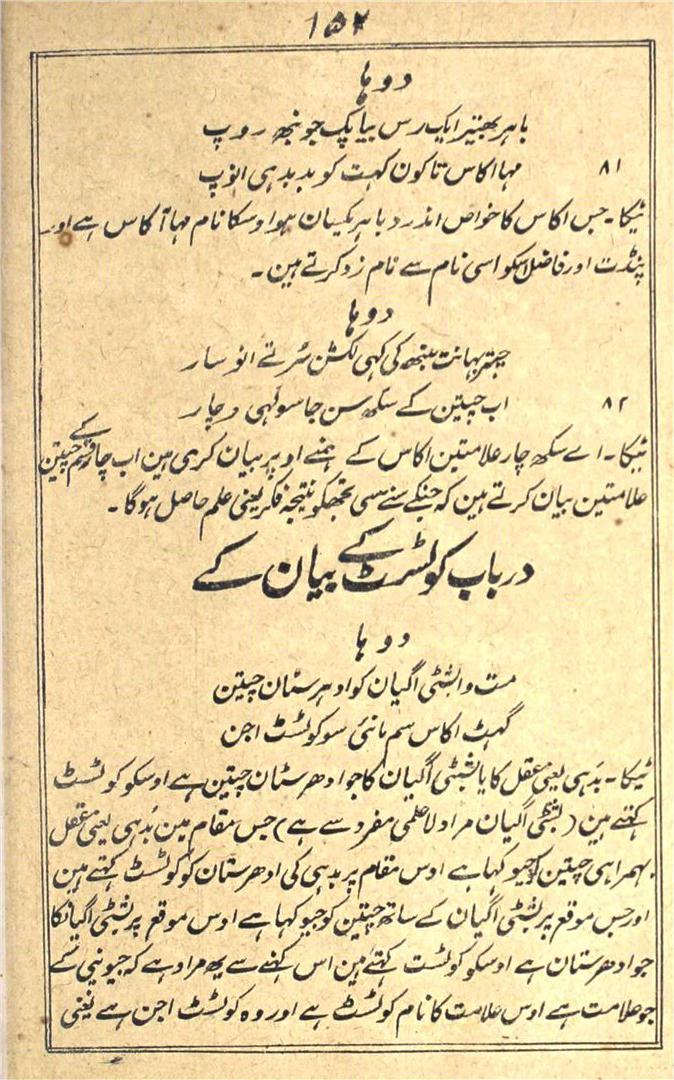 ۱۵۲
دوہا
باہر بھیتر ایک رس بیاپک جو نبھ روپ
۸۱ مہا اکاس تا کون کہت کو بد بدہی انوپ
ٹیکا۔ جس اکاس کا خواص اندر و باہر یکسان ہو اوسکا نام مہا آکاس ہے اور
پنڈت اور فاضل اسکو اسی نام سے نام زد کرتے ہین۔
دوہا
چتر بہانت نبھ کی کہی لکشن سُرتے انوسار
۸۲ اب چیتن کے سکھ سن جا سو لہی وچار
ٹیکا۔ اے سکھ چار علامتین اکاس کے ہمنے اوپر بیان کری ہین اب چار قسم کے چیتن
علامتین بیان کرتے ہین کہ جنکے سنے سی تجھکو نتیجہ فکر یعنی علم حاصل ہوگا۔
درباب کوٹسٹ کے بیان کے
دوہا
مت وا بشٹی اگیان کو ادہرستان چیتن
گہٹ اکاس سم مانئی سو کوٹسٹ اجن
ٹیکا۔ بدہی یعنی عقل کا یا بشٹی اگیان کا جو ادھرستان چیتن ہے اوسکو کوٹسٹ
کہتے ہین (بشٹی اگیان مراد لاعلمی مفرد سے ہے) جس مقام مین بدہی یعنی عقل
ہمراہی چیتن کو جیو کہا ہے اوس مقام پر بدہی کی ادھرستان کو کوٹسٹ کہتے ہین
اور جس موقع پر بشٹی اگیان کے ساتھ چیتن کو جیو کہا ہے اوس موقع پر بشٹی اگیانکا
جو ادھرستان ہے اوسکو کوٹسٹ کہتے ہین اس کہنے سے یہ مراد ہے کہ جیو نپی کے
جو علامت ہے اوس علامت کا نام کوٹسٹ ہے اور وہ کوٹسٹ اجن ہے یعنی